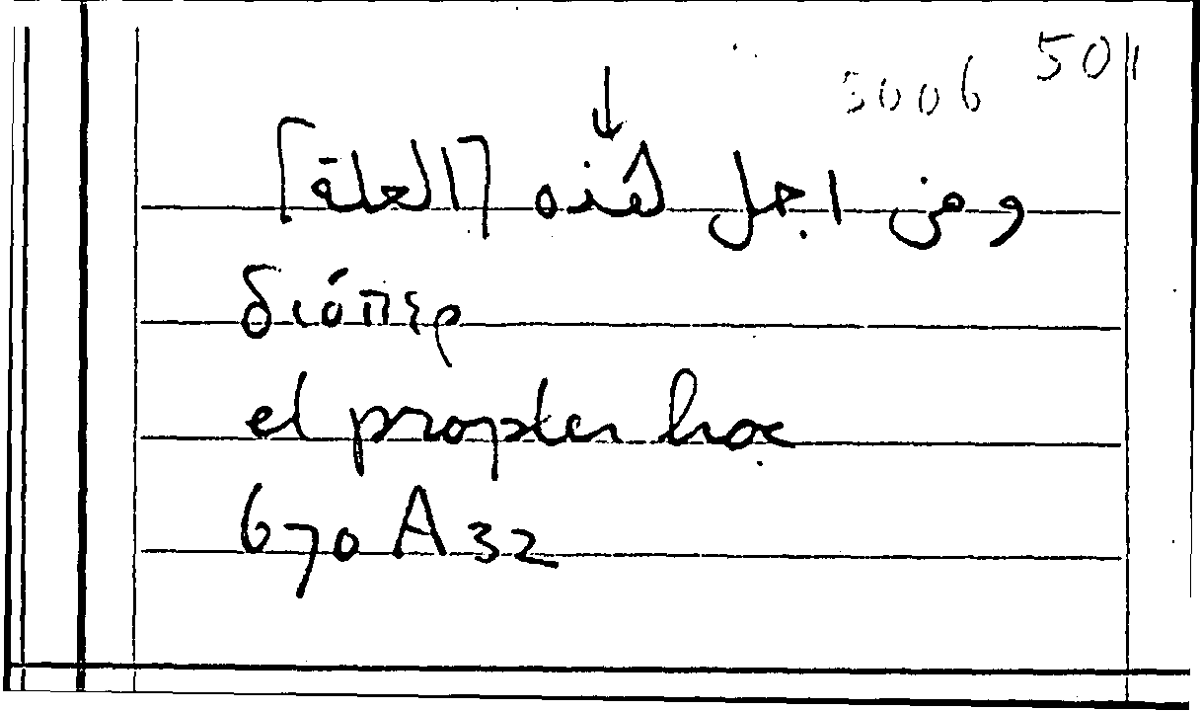 5006 501
ومن اجل هذه [العلة]
διόπερ
et propter hoc
670 A 32